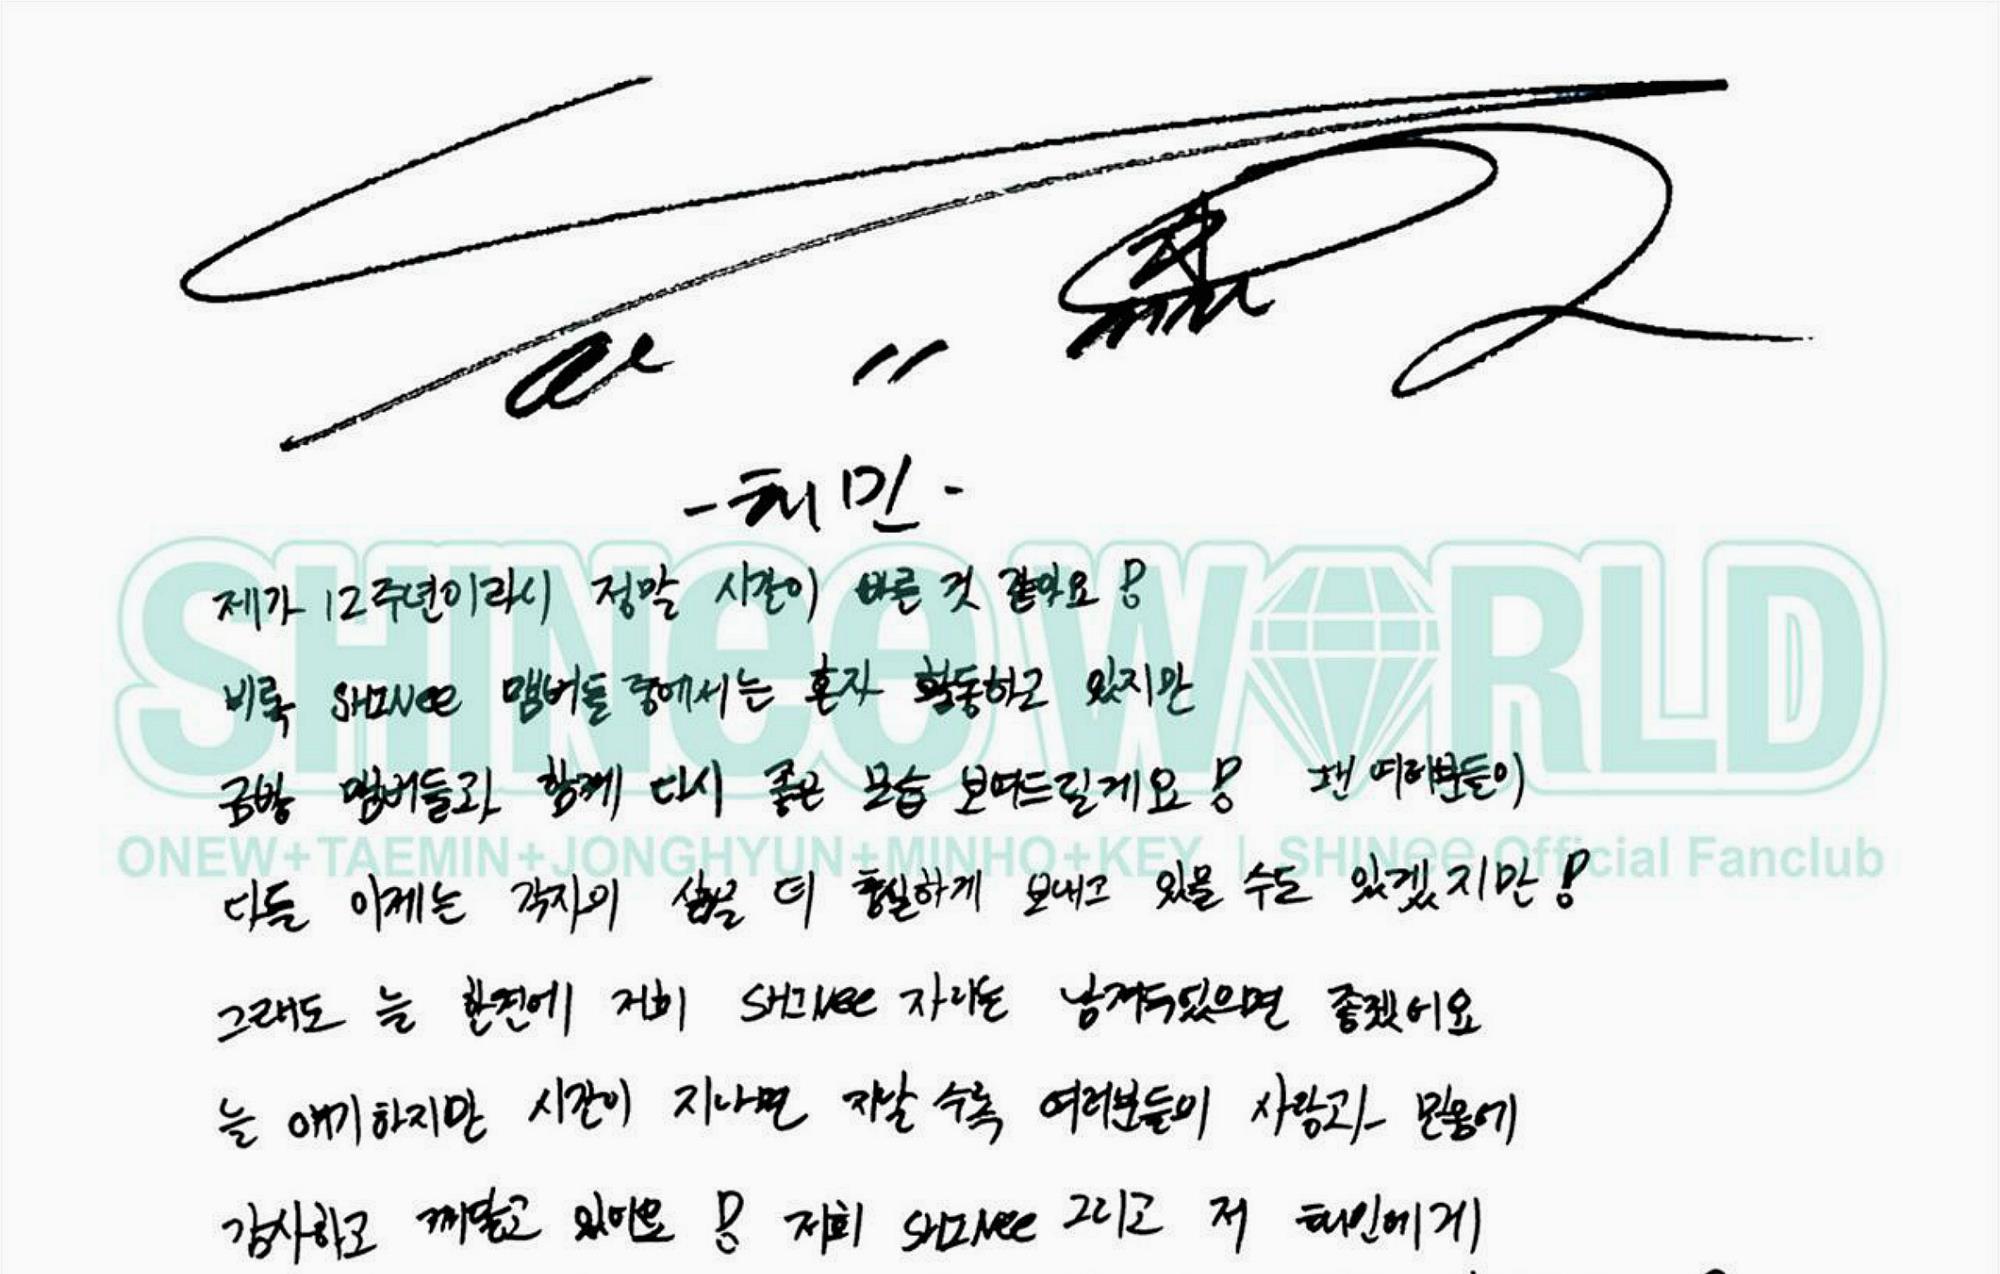 -태민-
제가 12주년이라니 정말 시간이 빠른 것 같아요!
비록 SHINee 멤버들 중에서는 혼자 활동하고 있지만
금방 멤버들과 함께 다시 좋은 모습 보여드릴게요! 팬 여러분들이
다들 이제는 각자의 삶을 더 충실하게 보내고 있을 수도 있겠지만!
그래도 늘 한켠에 저희 SHINee 자리는 남겨두었으면 좋겠어요
늘 얘기하지만 시간이 지나면 지날 수록 여러분들의 사랑과 믿음에
감사하고 깨닫고 있어요! 저희 SHINee 그리고 저 태민에게
SHINee WORLD
ONEW+TAEMIN+JONGHYUN+MINHO+KEY | SHINee Official Fanclub